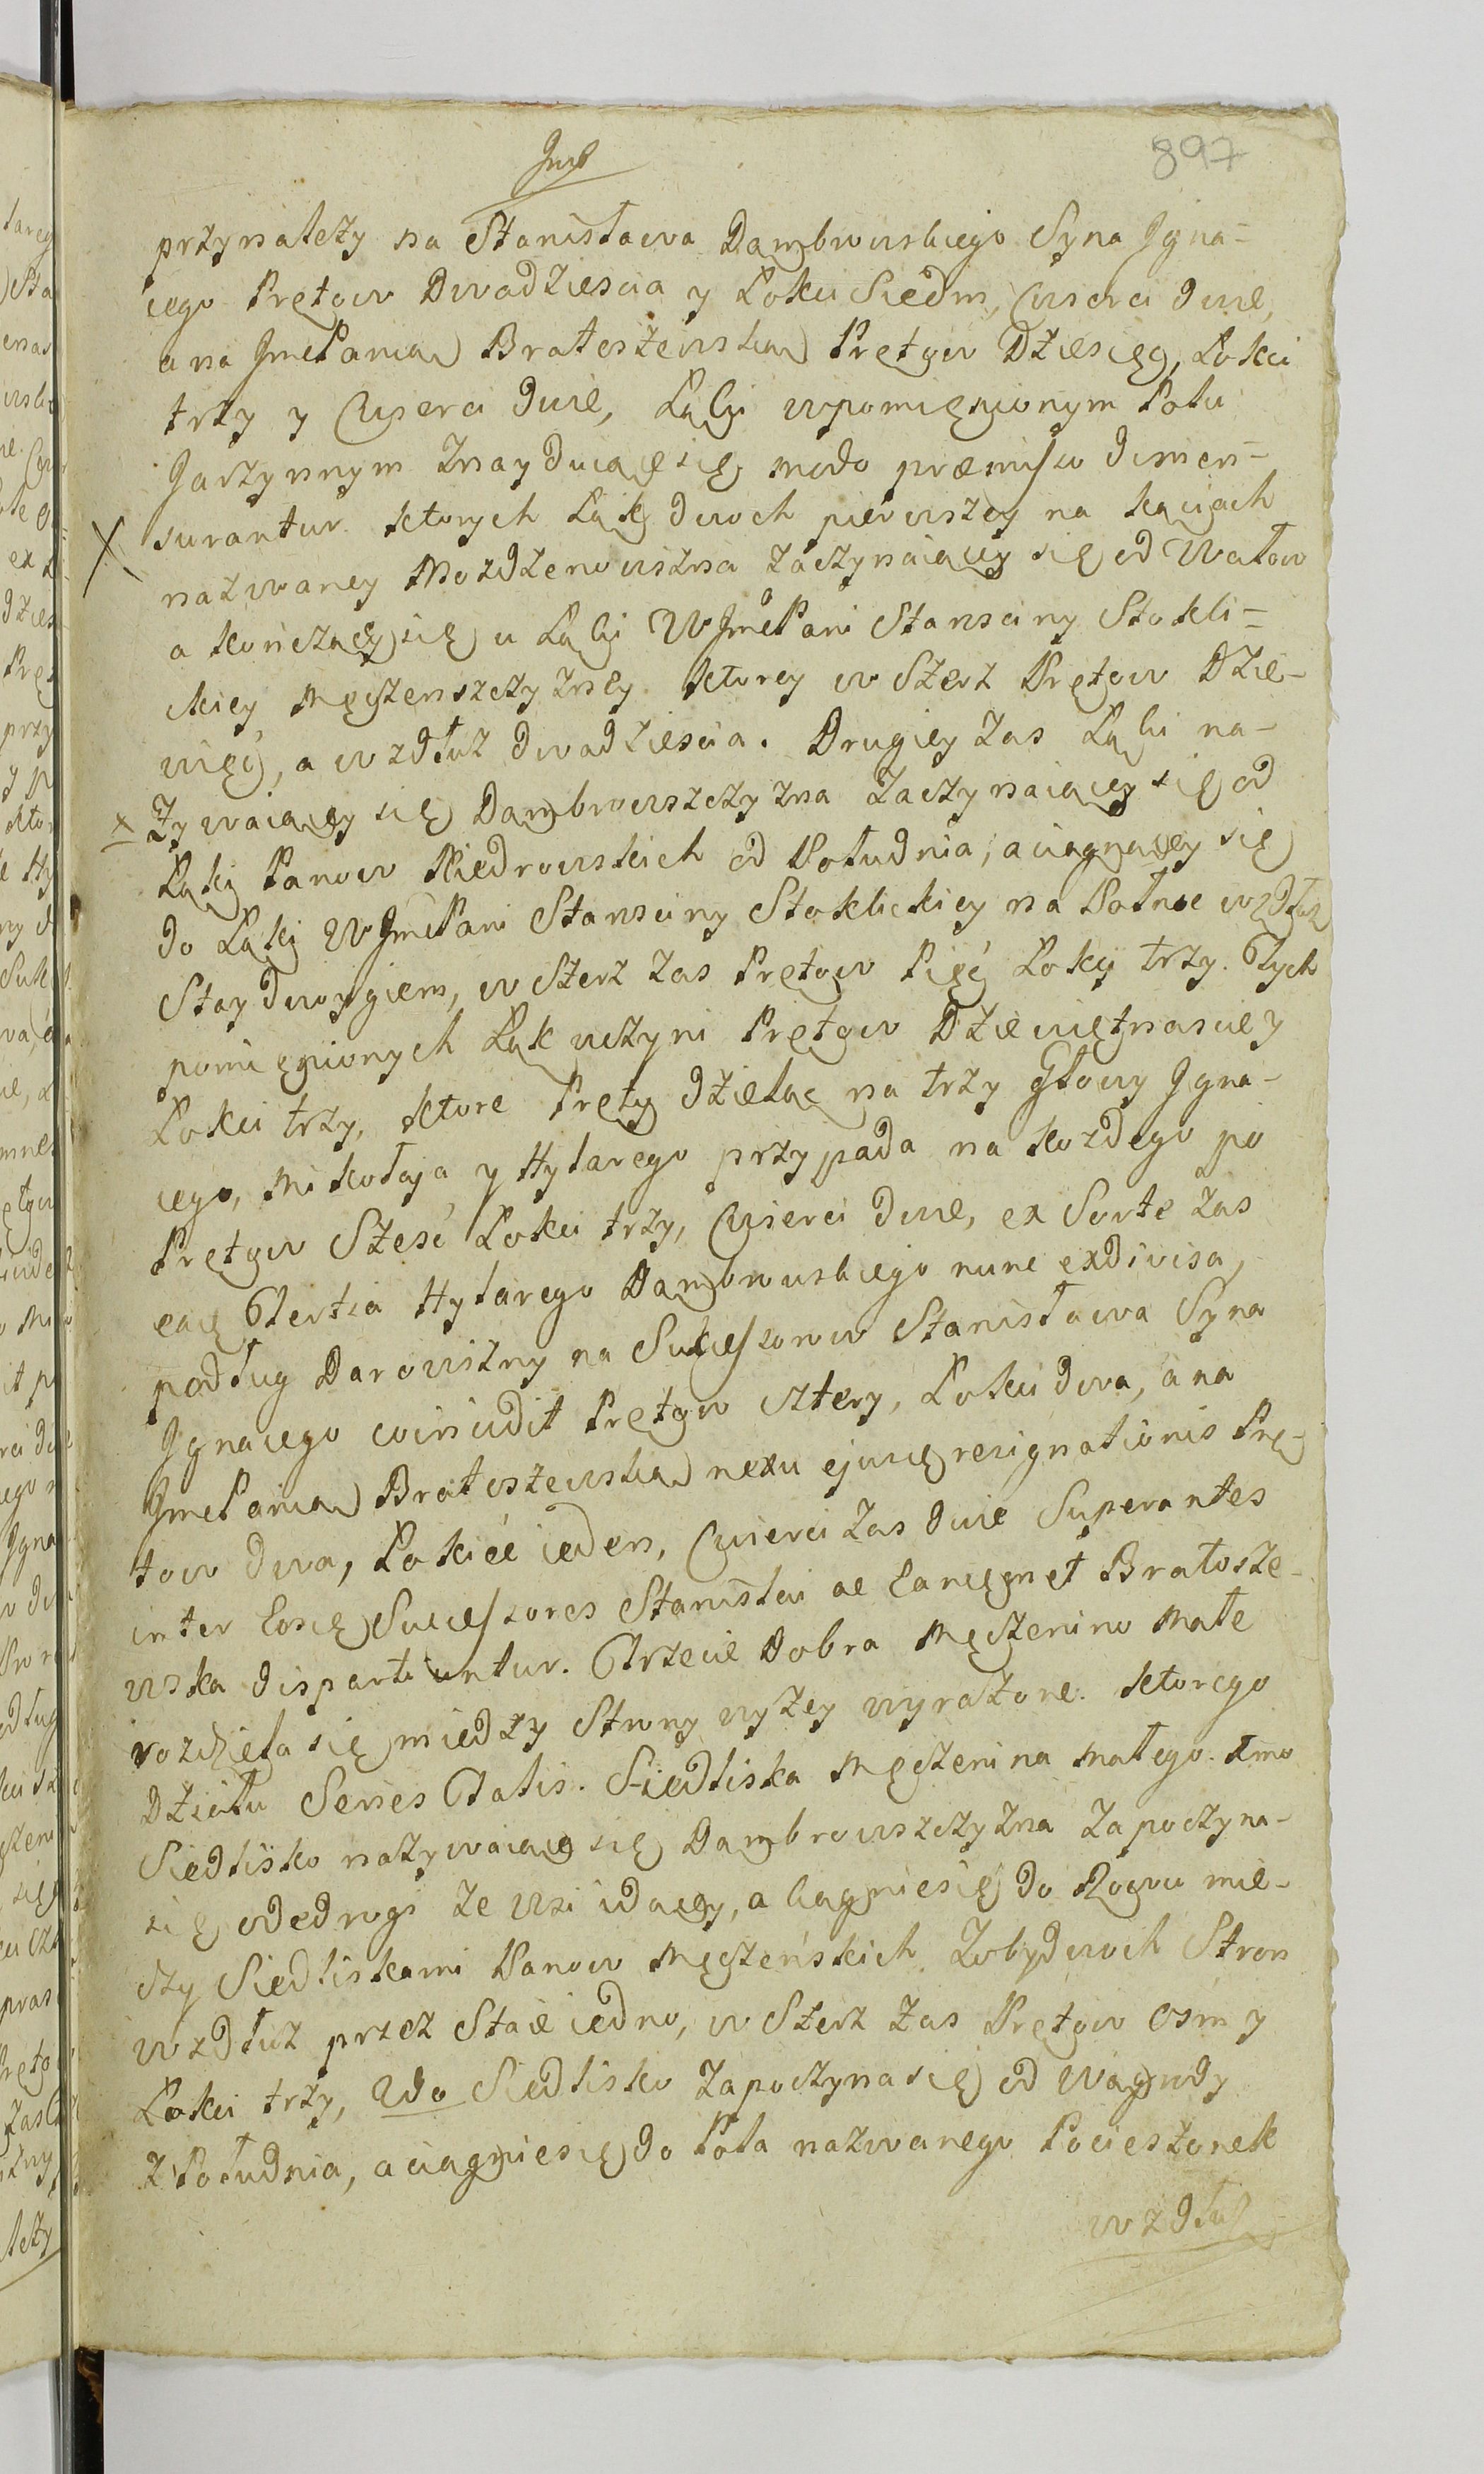 897
przynależy na Stanisława Dąmbrowskiego Syna Jgna=
cego Prętow Dwadziescia y Łokci Siedm, Cwierci dwie,
a na JmcPanią Bratoszewską Prętow Dziesięc, Łokci
trzy y Cwierci dwie, Łąki wpomięnionym Polu
Jarzynnym znayduiące się modo præmisso dimen=
surantur. ktorych Łąk dwoch pierwszey na kąciach
nazwaney Mozdzenowizna zaczynaiącey się od Wałow
a konczącey się u Łąki WJmcPani Stanściny Stokli=
ckiey Męczenszczyzney. ktorey w Szerz Prętow Dzie=
więć, a w zdłuz dwadziescia. Drugiey zas Łąki na=
zywaiącey się Dąmbrowszczyzna zaczynaiącey się od
Łąki Panow Niedrowskich od Południa, a ciągnącey się
do Łąki WJmcPani Stanściny Stoklickiey na Połnoc wzdłuz
Stay dwoygiem, w Szerz zas Prętow Pięć Łokcy trzy. Tych
pomięnionych Łąk uczyni Prętow Dziewiętnascie y
Łokci trzy, ktore Pręty dzieląc na trzy Głowy Jgna=
cego, Mikołaja y Hylarego przypada na kozdego po
Prętow Szesć Łokci trzy, Cwierci dwie, ex Sorte zas
eaq Tertia Hylarego Dąmbrowskiego nunc exdivisa,
podług Darowizny na Sukcessorow Stanisława Syna
Jgnacego coincidit Prętow cztery, Łokci dwa, a na
JmcPanią Bratoszewską nexu ejusq resignationis Prę=
tow dwa, Łokieć ieden, Cwierci zas dwie Superantes
inter Eosq Successores Stanislai ac Eandem et Bratosze=
wska dispartiuntur. Trzecie Dobra Męczenino Małe
rozdziela się między Strony wyzey wyrazone. ktorego
Działu Series Talis. Siedliska Męczenina Małego. 1mo
Siedlisko nazywaiące się Dąmbrowszczyzna zapoczyna=
się odedrogi ze wsi idącey, a Ciągnie się do Rowu mie=
dzy Siedliskami Panow Męczeńskich zobydwoch Stron
wzdłuz przez Staie iedno, w Szerz zas Prętow osm y
Łokci trzy, 2do Siedlisko zapoczyna się od Wągrody
z Południa, a ciągnie się do Pola nazwanego Pocieszonek
wzdłuz